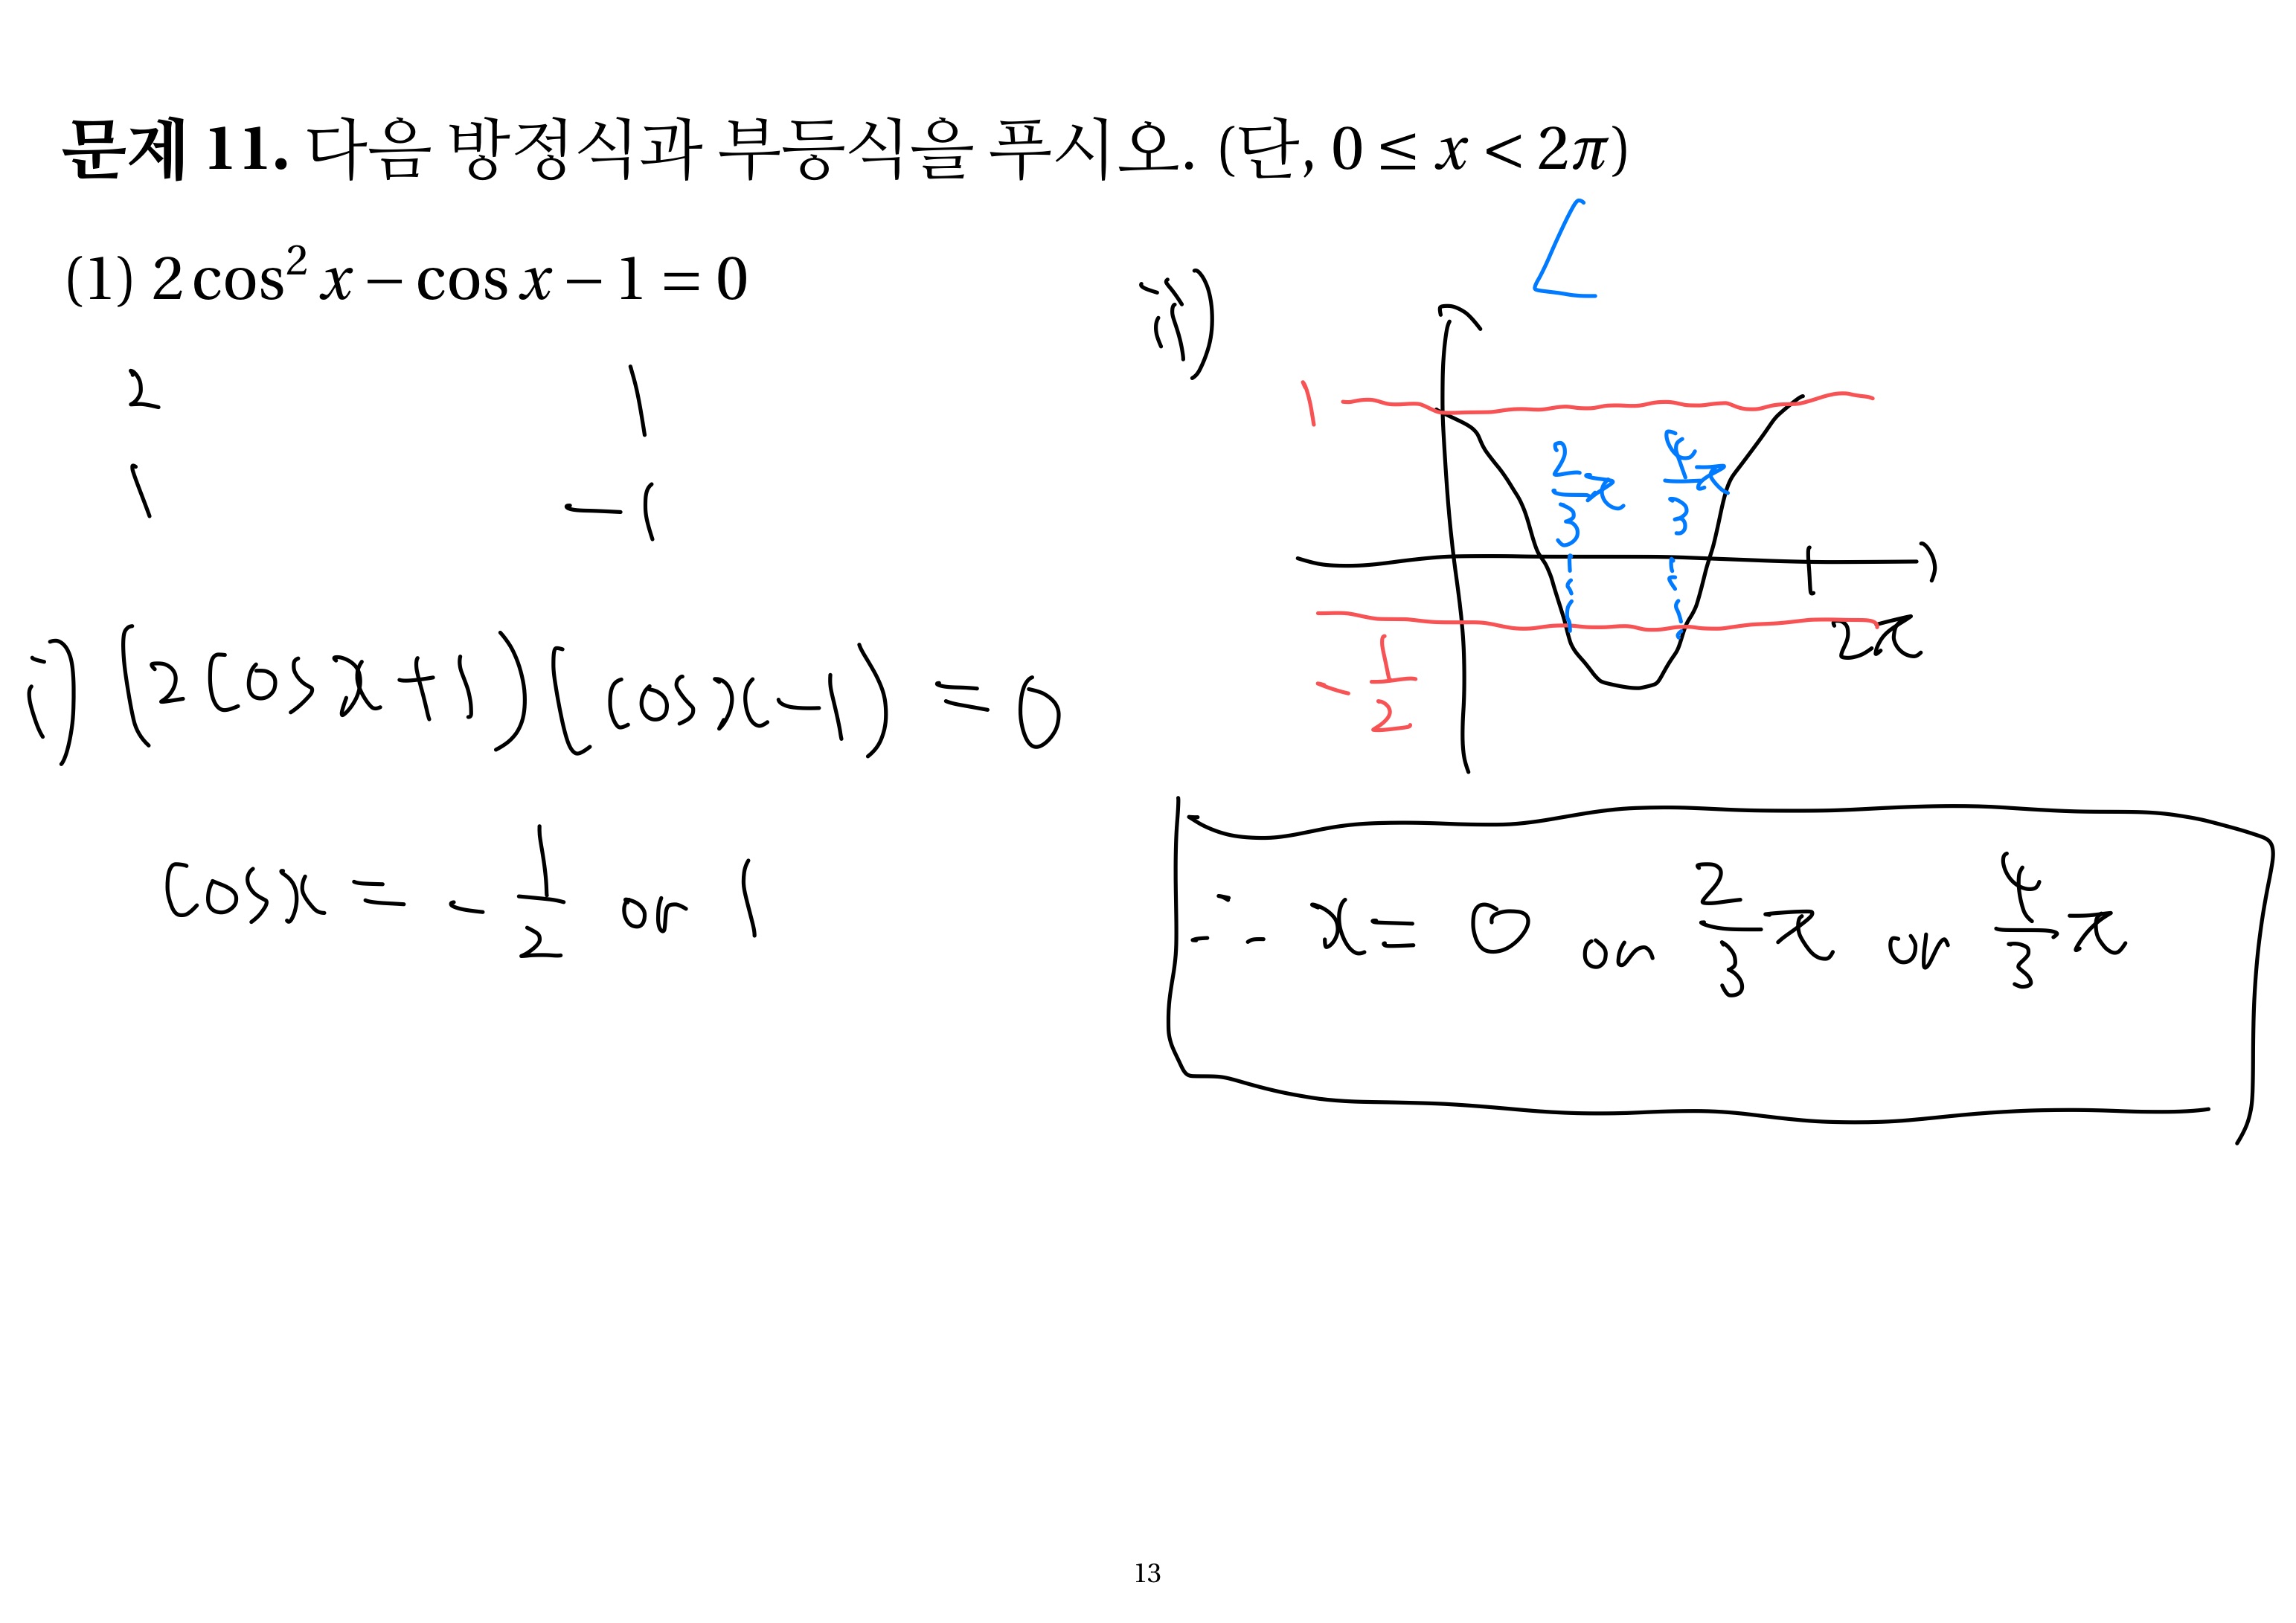 문제 11. 다음 방정식과 부등식을 푸시오. (단, 0 ≤ x < 2π)
(1) 2 cos² x − cos x − 1 = 0
2 1
1 −1
i) (2cosx+1)(cosx−1) = 0
cosx = −1/2 or 1
ii)
1
2/3π 4/3π
2π
−1/2
∴ x = 0 or 2/3π or 4/3π
13